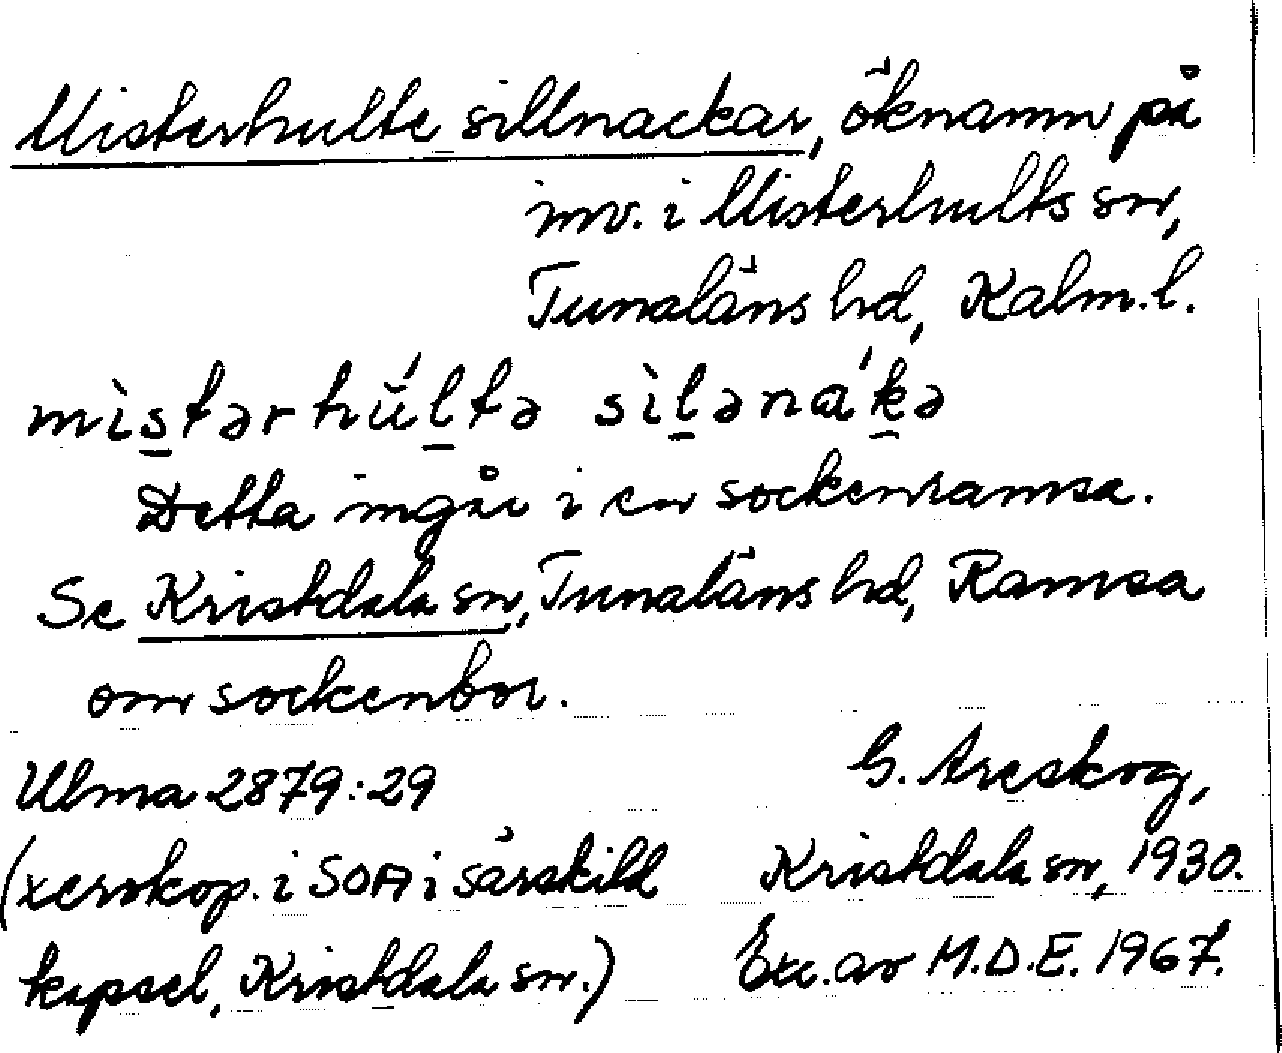 Misterhulte sillnackar, öknamn på
inv. i Misterhults sn,
Tunaläns hd, Kalm.l.
mìstərhúltə sìlənákə
Detta ingår i en sockenramsa.
Se Kristdala sn, Tunaläns hd, Ramsa
om sockenbor.
Ulma 2879:29
G. Areskog,
(xeroxkop. i SOA i särskild
Kristdala sn, 1930.
kapsel, Kristdala sn.)
Exc. av M.D.E. 1967.